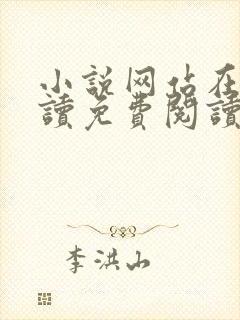 小说网站在
讀免費閱讀
李洪山